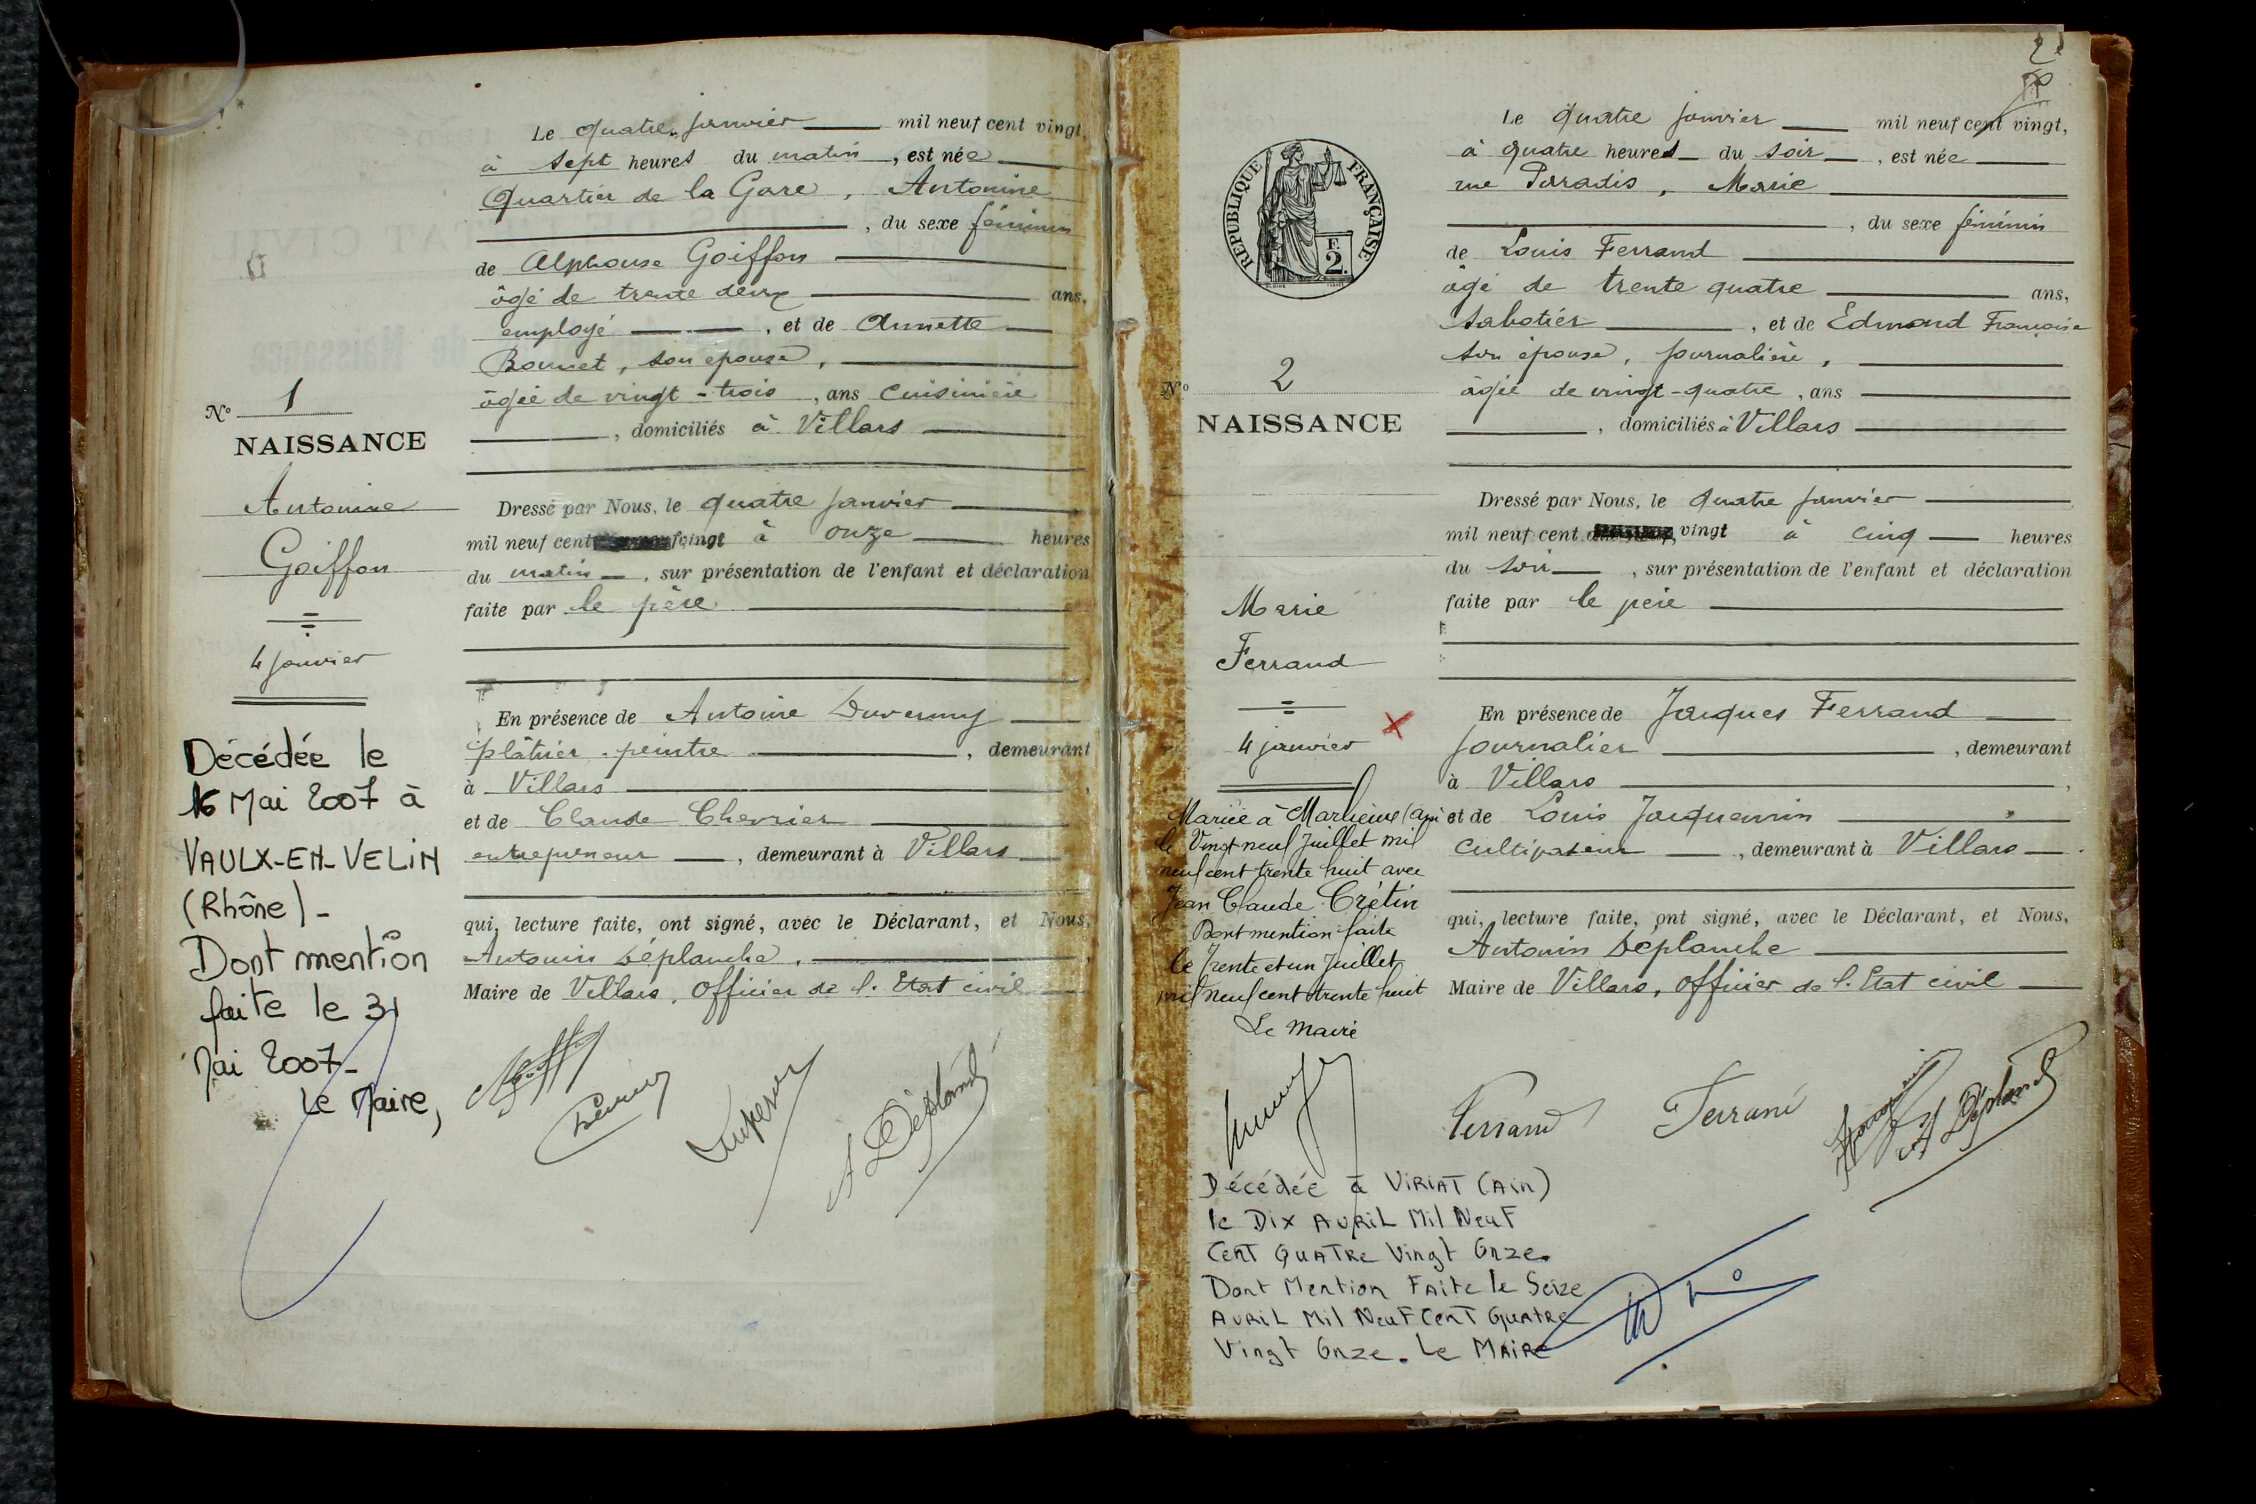 Le quatre janvier mil neuf cent vingt,
à sept heures du matin, est née
Quartier de la Gare, Antonine
, du sexe féminin
de Alphonse Goiffon
âgé de trente deux ans,
employé, et de Annette
Bonnet, son épouse,
âgée de vingt-trois, ans cuisinière
, domiciliés à Villars
N° 1
NAISSANCE
Antonine
Goiffon
4 janvier
Dressé par Nous, le quatre janvier
mil neuf cent vingt à onze heures
du matin, sur présentation de l'enfant et déclaration
faite par le père
En présence de Antoine Duvernay
plâtrier-peintre, demeurant
à Villars
et de Claude Chevrier
entrepreneur, demeurant à Villars
qui, lecture faite, ont signé, avec le Déclarant, et Nous,
Antonin Déplanche,
Maire de Villars, officier de l'Etat civil
A Déplanche
Décédée le
16 Mai 2007 à
VAULX-EN-VELIN
(Rhône)-
Dont mention
faite le 31
Mai 2007-
Le Maire,
2
RÉPUBLIQUE FRANÇAISE
F.
2.
Le quatre janvier mil neuf cent vingt,
à quatre heures du soir, est née
rue Paradis, Marie
, du sexe féminin
de Louis Ferrand
âgé de trente quatre ans,
sabotier, et de Edmond Françoise
son épouse, journalière,
âgée de vingt-quatre, ans
, domiciliés à Villars
N° 2
NAISSANCE
Marie
Ferrand
4 janvier
Dressé par Nous, le quatre janvier
mil neuf cent vingt à cinq heures
du soir, sur présentation de l'enfant et déclaration
faite par le père
En présence de Jacques Ferrand
journalier, demeurant
à Villars,
et de Louis Jacquemin
cultivateur, demeurant à Villars
qui, lecture faite, ont signé, avec le Déclarant, et Nous,
Antonin Déplanche
Maire de Villars, officier de l'Etat civil
Ferrand Ferrand Jacquemin A Déplanche
Mariée à Marlieux (Ain)
le Vingt neuf Juillet mil
neuf cent trente huit avec
Jean Claude Crétin
Dont mention faite
le Trente et un Juillet
mil neuf cent trente huit
Le Maire
Décédée à VIRIAT (Ain)
le Dix AVRIL Mil Neuf
Cent Quatre Vingt Onze.
Dont Mention Faite le Seize
AVRIL Mil Neuf Cent Quatre
Vingt Onze. Le MAIRE